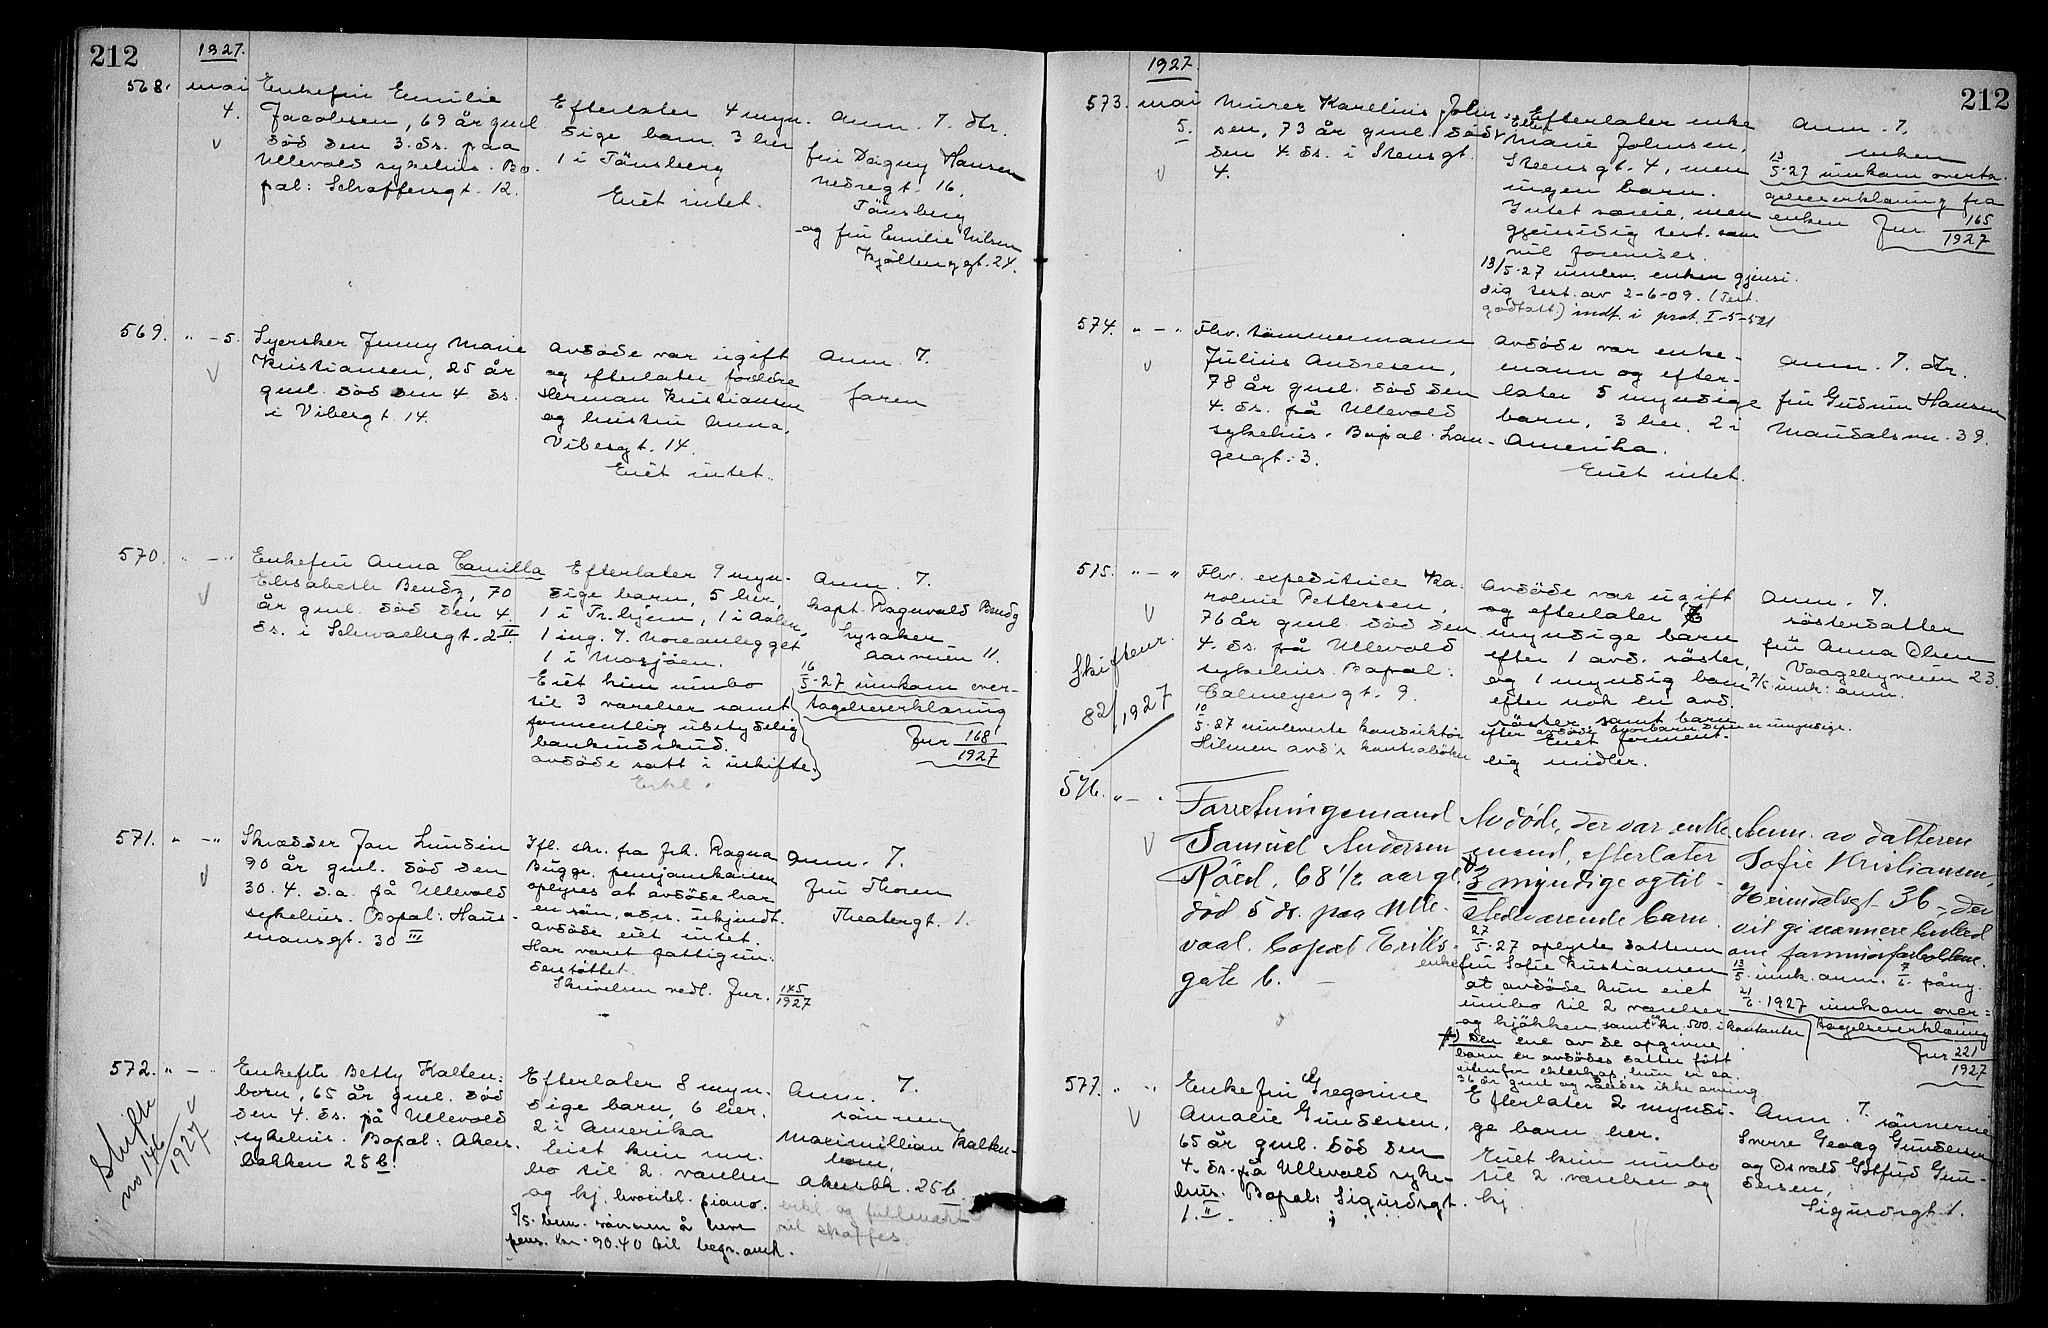 212
1927.
568. mai 4.
Enkefru Emilie
Jacobsen, 69 år gml.
død den 3. ds. paa
Ullevold sykehus. Bo-
pæl: Schaffersgt. 12.
Efterlater 4 myn-
dige barn. 3 her
1 i Tönsberg
Eiet intet.
Anm. 7. dtr.
fru Dagny Hansen
Nedregt. 16,
Tönsberg
og fru Emilie Nilsen
Kjölberggt. 24.
569. " - 5.
Syerske Jenny Marie
Kristiansen, 25 år
gml. död den 4 ds.
i Vibesgt. 14.
Avdöde var ugift
og efterlater foreldre
Herman Kristiansen
og hustru Anna,
Vibesgt. 14.
Eiet intet.
Anm. 7.
faren
570. " - "
Enkefru Anna Camilla
Elisabeth Bendz, 70
år gml. död den 4.
ds. i Schwachsgt. 2 II
Efterlater 9 myn-
dige barn, 5 her,
1 i Tr.hjem, 1 i Aaler,
1 ing. 7. Noreanlegget
1 i Mosjöen.
Eiet kun innbo
til 3 værelser samt
formentlig ubetydelig
bankindskud.
avdöde satt i uskifte.
Erkl.
Anm. 7.
kapt. Ragnvald Bendz
Lysaker
Aasveien 11.
16/5-27 innkom over-
tagelseserklæring
Jnr 168/1927
571. " - "
Skrædder Jan Lundin
90 år gml. död den
30. 4. d.a. på Ullevold
sykehus. Bopæl: Haus-
mansgt. 30 III
Ifl. skr. fra frk. Ragna
Bugge, pensjonskassen
oplyses at avdöde har
en sön, adrs. ukjendt.
avdöde eiet intet.
Har været fattigun-
derstöttet.
Skrivelsen vedl. Jnr. 145/1927
Anm. 7.
fru Thoren
Theatergt. 1.
572. " - "
Skifte
no 146/1927
Enkefru Betty Kalten-
born, 65 år gml. död
den 4. ds. på Ullevold
sykehus. Bopæl: Akers-
bakken 25 b.
Efterlater 8 myn-
dige barn, 6 her.
2 i Amerika
Eiet kun inn-
bo til 2 værelser
og kj. hvoribl. piano.
5/5. bem. sönnen å heve
pens. kr. 90.40 til begr. omk.
Anm. 7.
sönnen
Maximillian Kalten-
born,
Akersbk. 25 b.
erkl. og fullmakt
vil skaffes.
1927.
212
573. mai 5.
Murer Karelius John-
sen, 73 år gml. död
den 4. ds. i Stensgt.
4.
Efterlater enke
Ellen
Marie Johnsen,
Steensgt. 4, men
ingen barn.
Intet særeie, men
gjensidig test. som
vil forevises.
13/5-27 innlev. enken gjensi-
dig test. av 2-6-09. (Test.
godtatt) indf. i prot. I-5-521
Anm. 7.
enken
13/5-27 innkom overta-
gelseserklæring fra
enken Jnr 165/1927
574. " - "
Fhv. tömmermann
Julius Andresen,
78 år gml. död den
4. ds. på Ullevold
sykehus. Bopæl. Lan-
gesgt. 3.
Avdöde var enke-
mann og efter-
later 5 myndige
barn, 3 her, 2 i
Amerika.
Eiet intet.
Anm. 7. dtr.
fru Gudrun Hansen
Maridalsvn. 39.
575. " - "
Skiftenr.
82/1927
Fhv. expeditrice Ka-
roline Pettersen,
76 år gml. död den
4. ds. på Ullevold
sykehus. Bopæl:
Calmeyersgt. 9.
10/5-27 innleverte konduktör
Hilmen avd's kontrabøker
Avdöde var ugift
og efterlater
myndige barn
efter 1 avd. söster,
og 1 myndig barn
efter nok en avd.
söster, samt barn
efter avdöde er umyndige.
Eiet forment-
lig midler.
Anm. 7.
sösterdatter
fru Anna Olsen
Vaagebyveien 23.
7/5. innk. anm.
576. " - "
Forretningsmand
Samuel Andersen
Röed, 68 1/2 aar gl.
död 5 ds. paa Ulle-
vaal. bopæl Eriks-
gate 6.
Avdöde, der var enke-
mand, efterlater
3 myndige og til-
stedeværende barn.
27/5-27 oplyste datteren
enkefru Sofie Kristiansen
at avdöde kun eiet
innbo til 2 værelser
og kjökken, samt kr. 500. i kontanter
x) Den ene av de opgivne
barn er avdödes datter född
utenfor ekteskap, hun er ca.
36 år gml og våldes ikke arving.
Anm. av datteren
Sofie Kristiansen,
Heimdalsgt 36, der
vil gi nærmere besked
om formuesforholdene.
13/5. innk. anm. 7/6. pång.
21/6. 1927 innkom over-
tagelseserklæring
Jnr 221/1927
577. " - "
Enkefru Gregorine
Amalie Gundersen,
65 år gml. död den
4. ds. på Ullevold syke-
hus. Bopæl: Sigurdsgt.
1. II.
Efterlater 2 myndi-
ge barn her.
Eiet kun innbo
til 2 værelser og
kj.
Anm. 7. sönnerne
Sverre Georg Gundersen
og Osvald Gotfred Gun-
dersen,
Sigurdsgt. 1.